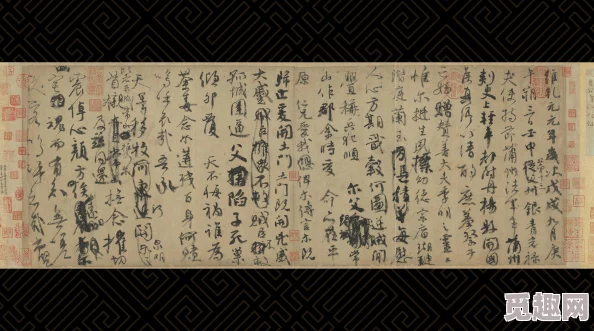 維乾元元年歲次戊戌九月庚
午朔三日壬申第十三叔銀青光祿
夫使持節蒲州諸軍事蒲州
刺史上輕車都尉丹楊縣開國
侯真卿以清酌庶羞祭于
亡姪贈贊善大夫季明之靈曰
惟爾挺生夙標幼德宗廟瑚璉
階庭蘭玉每慰
人心方期戩穀何圖逆賊閒
釁稱兵犯順爾父竭誠常
山作郡余時受命亦在平
原仁兄愛我俾爾傳言爾既
歸止爰開土門土門既開凶威
大蹙賊臣不救
孤城圍逼父陷子死巢
傾卵覆天不悔禍誰為
荼毒念爾遘殘百身何贖
嗚呼哀哉吾承
天澤移牧河關泉明
首櫬及茲同還撫念摧切
震悼心顏方俟
幽宅魂而有知無嗟
久客嗚呼哀哉尚饗
觅趣网